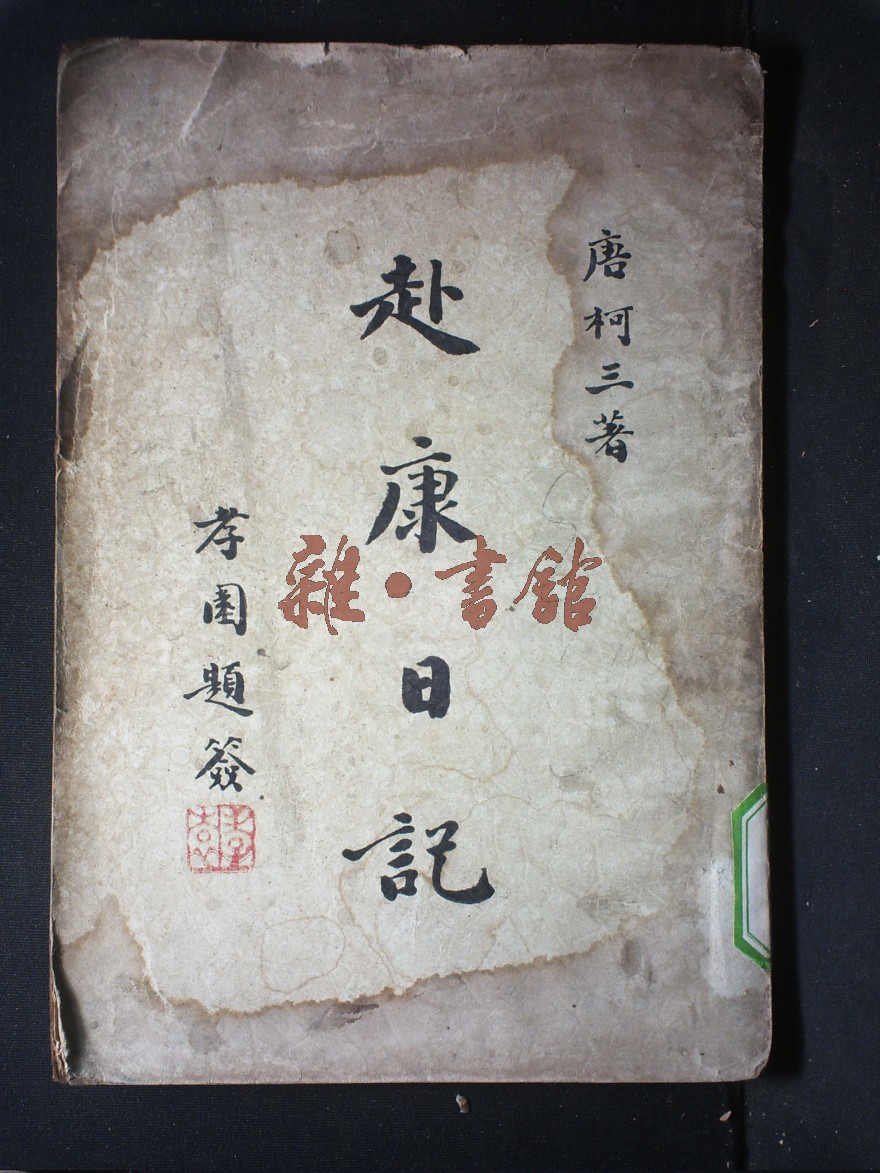 唐柯三著
赴康日記
孝園題簽
孝園
雜·書館